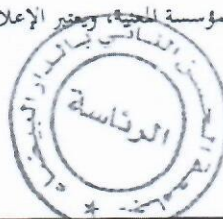 مؤسسة المعنية، ويعتبر الإعلا
جامعة الحسن الثاني بالدار البيضاء
الرئاسة